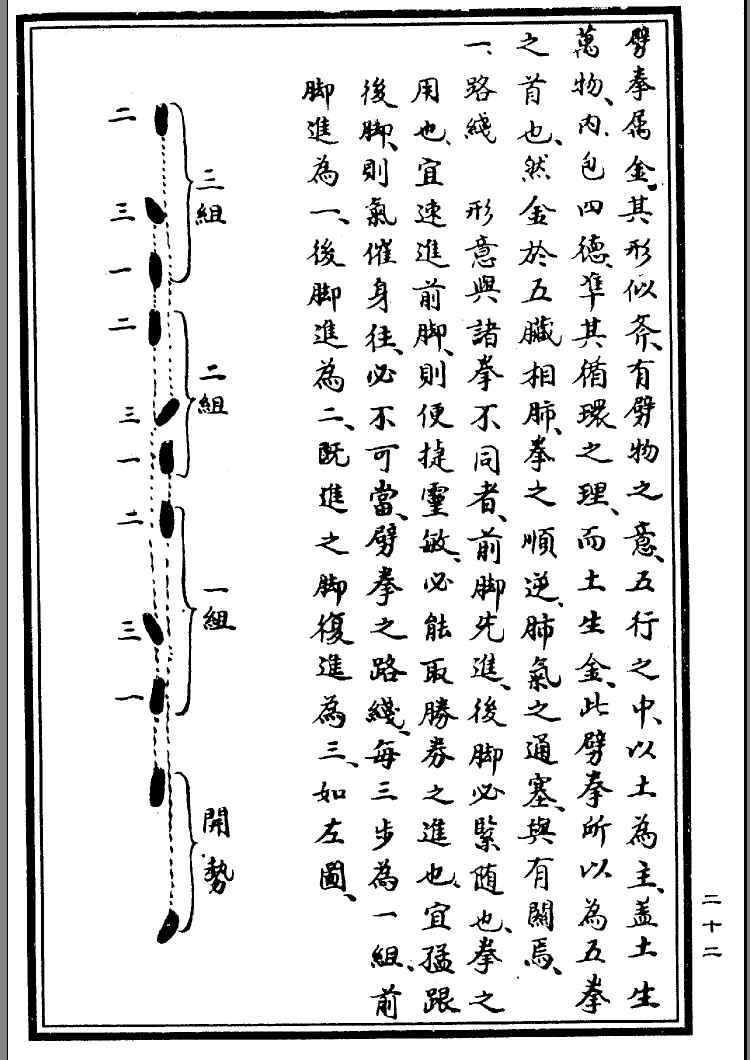 劈拳属金、其形似斧、有劈物之意、五行之中、以土為主、蓋土生
萬物、内包四德、準其循環之理、而土生金、此劈拳所以為五拳
之首也、然金於五臟相肺、拳之順逆、肺氣之通塞、與有關焉、
一、路綫　形意與諸拳不同者、前脚先進、後脚必緊随也、拳之
用也、宜速進前脚、則便捷靈敏、必能取勝劵之進也、宜猛跟
後脚、則氣催身往、必不可當、劈拳之路綫、每三步為一組、前
脚進為一、後脚進為二、既進之脚復進為三、如左圖、
三組
二組
一組
開勢
二
三
一
二
三
一
二
三
一
二十二